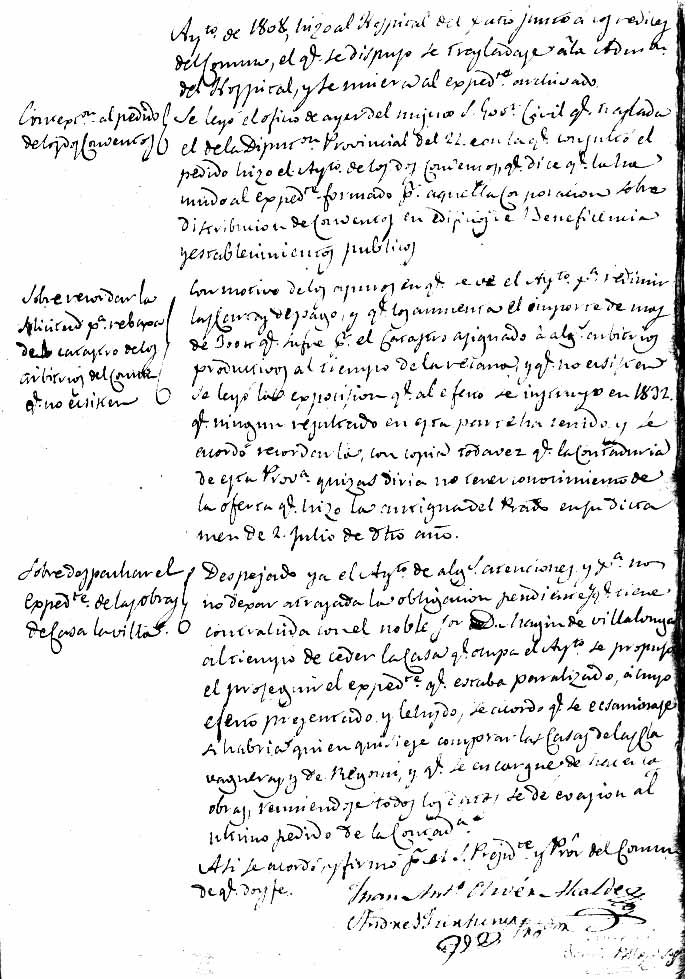 Ayto. de 1808, hizo al Hospital del patio junto a los rediles
del Comun, el qe. se dispuso se trasladase à la Admon.
del Hospital, y se uniera al expedte. archivado.
Contextn. al pedido
de los dos Conventos
Se leyó el oficio de ayer del mismo S. Gobr. Civil qe. traslada
el de la Diputon. Provincial del 22. con la qe. consultó el
pedido hizo el Ayto. de los dos Conventos, qe. dice qe. la ha
unido al expedte. formado pr. aquella Corporacion sobre
distribucion de Conventos en edificios de Beneficencia
y establecimientos publicos
Sobre recordar la
solicitud pa. rebaxa
de catastro de los
arbitrios del Comun
qe. no ecsisten
Con motivo de los apuros en qe. se ve el Ayto. pa. redimir
las Cartas de pago, y qe. los aumenta el importe de mas
de 300 qe. sufre pr. el Catastro asignado à algs. arbitrios
productivos al tiempo de la , y qe. no ecsisten
se leyó la exposicion qe. al efecto se instruyo en 1832.
qe. ningun resultado en esta parte ha tenido, y se
acordó recordarla, con copia toda vez qe. la Contaduria
de esta Prova. quizas diria no tener conocimiento de
la oferta qe. hizo la antigua del Ramo en su dicta
men de 2. Julio de dho año.
Sobre despachar el
Expedte. de las obras
de Casa la villa.
Despejado ya el Ayto. de algs. atenciones, y pa. no
no dexar atrasada la obligacion pendiente, qe. tiene
contraida con el noble Sor. Dn. de Villalonga
al tiempo de ceder la Casa qe. ocupa el Ayto. se propuso
el proseguir el expedte. qe. estaba paralizado, à cuyo
efecto presentado y lehido, se acordo qe. se ecsaminase
si habria quien quisiese comprar las Casas de las
y de , y qe. se encargue de hacer la
obras, reuniendose todos los datos se de evasion al
ultimo pedido de la Contada.
Asi se acordó, y firmo pr. el S. Presidte. y Pror. del Comun
de qe. doy fe.
Juan Anto. Alcalde
Andres